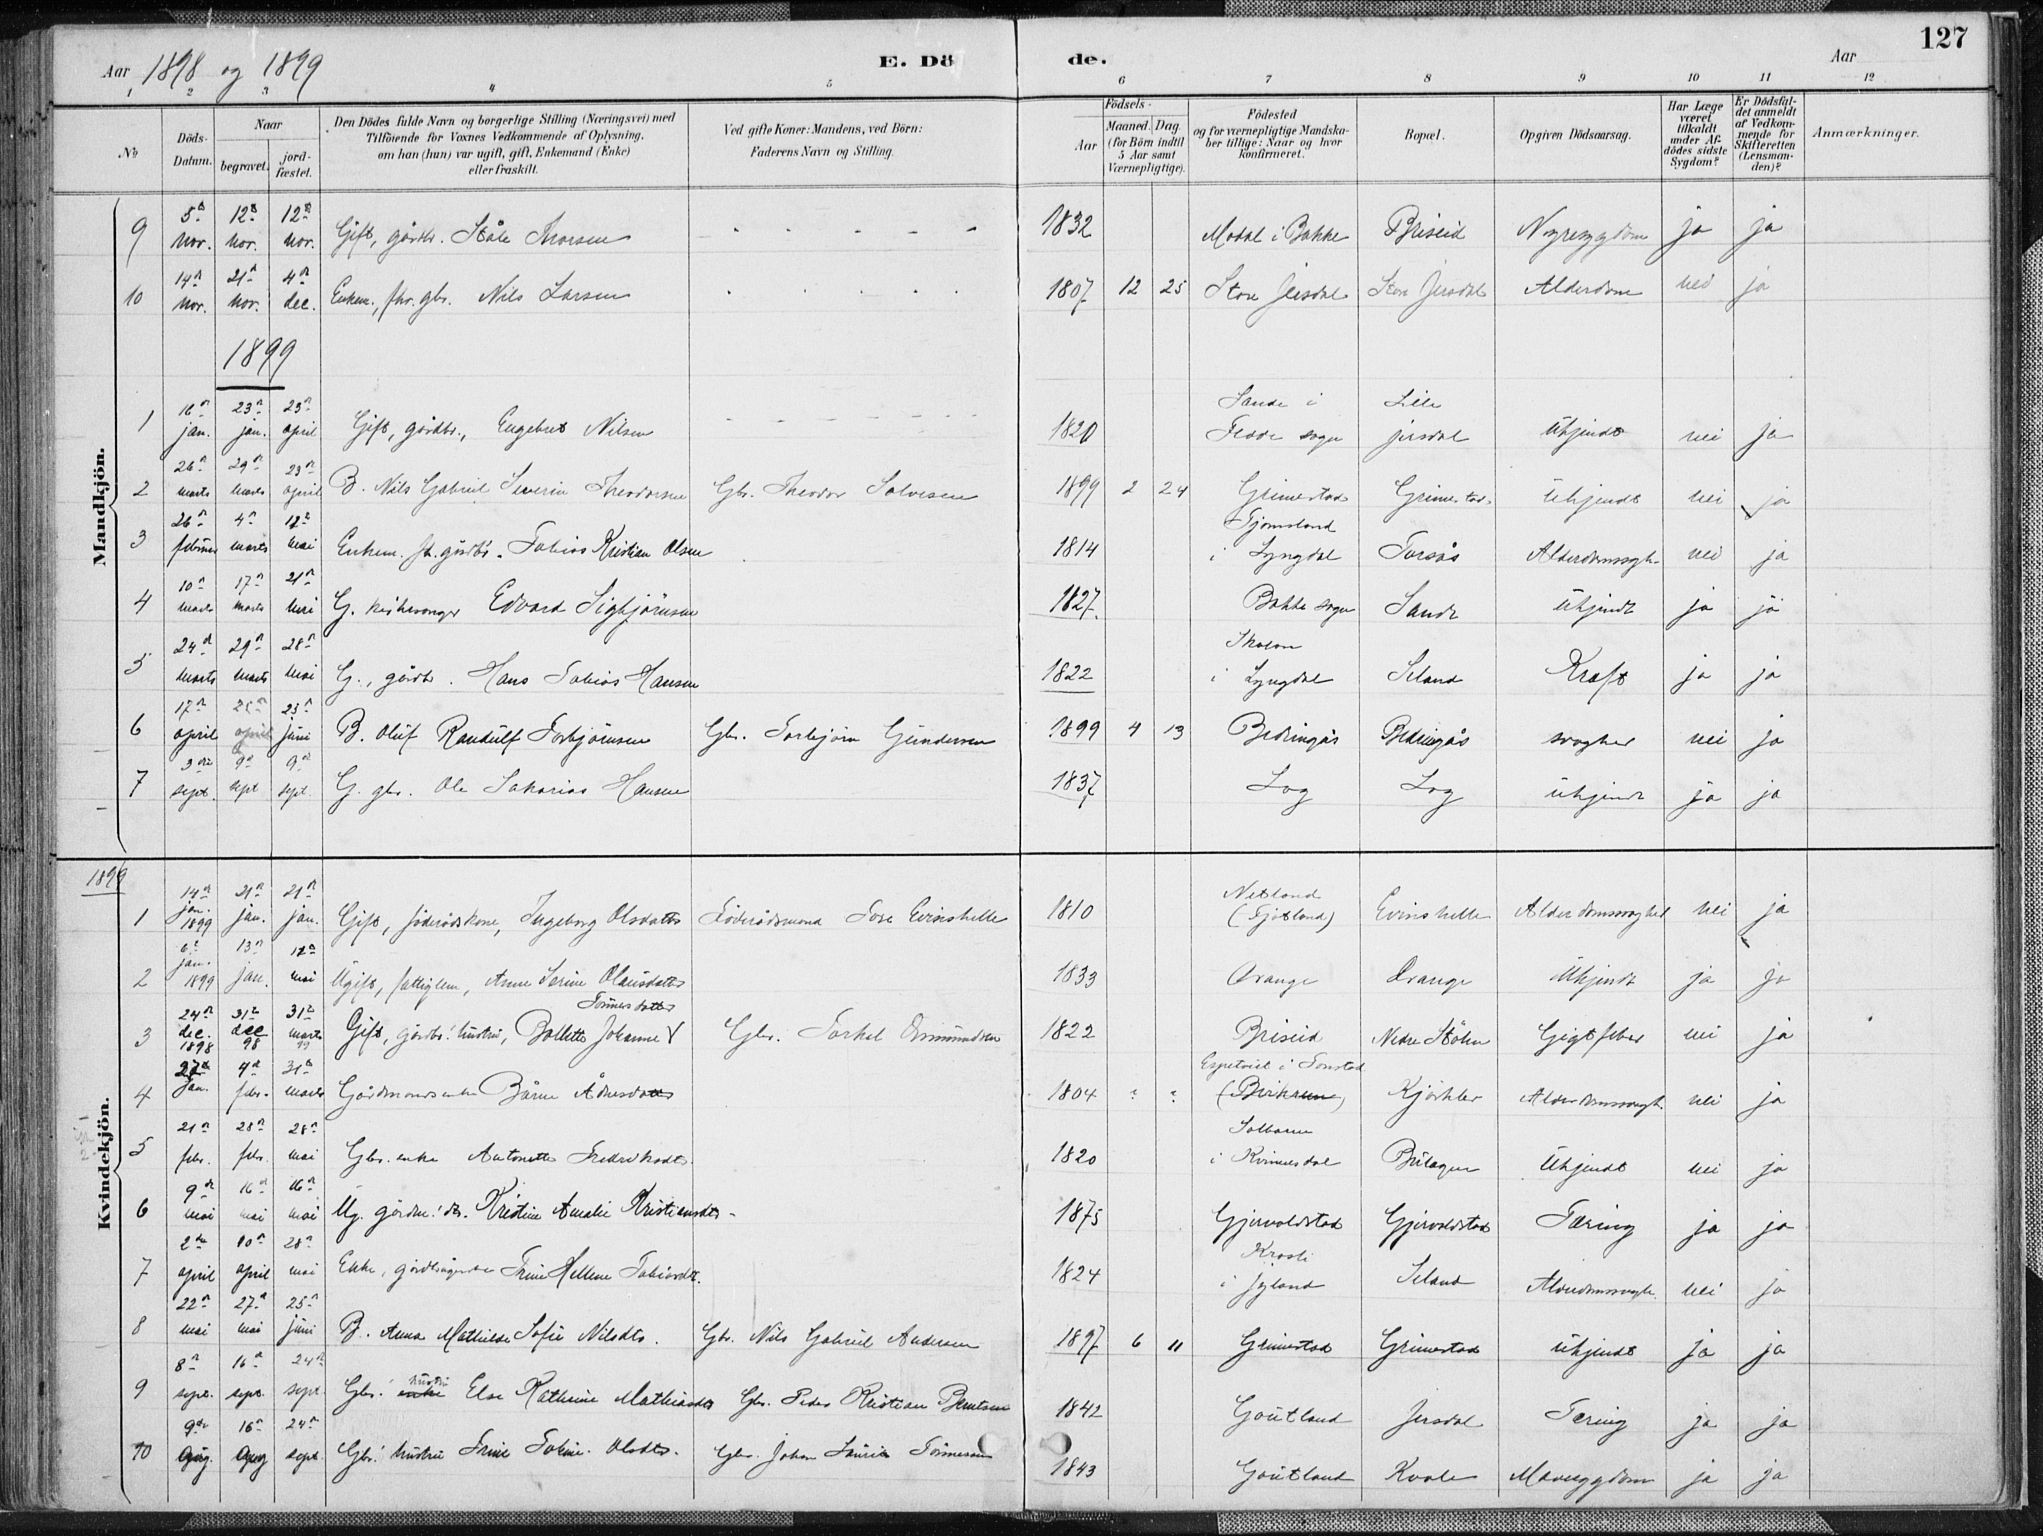 127
Aar 1898 og 1899 E. Dö de. Aar
1 2 3 4 5 6 7 8 9 10 11 12
No
Döds-Datum.
Naar
begravet.
jord-fæstet.
Den Dödes fulde Navn og borgerlige Stilling (Næringsvei) med
Tilföiende for Voxnes Vedkommende af Oplysning,
om han (hun) var ugift, gift, Enkemand (Enke)
eller fraskilt.
Ved gifte Koner: Mandens, ved Börn:
Faderens Navn og Stilling.
Födsels-
Aar
Maaned. Dag
(for Börn indtil
5 Aar samt
Værnepligtige).
Födested
og for værnepligtige Mandska-
ber tillige: Naar og hvor
konfirmeret.
Bopæl.
Opgiven Dödsaarsag.
Har Læge
været
tilkaldt
under Af-
dödes sidste
Sygdom?
Er Dödsfal-
det anmeldt
af Vedkom-
mende for
Skifteretten
(Lensman-
den)?
Anmærkninger.
Mandkjön.
9 5te nov. 12te nov. 12te nov. Gift, gårdbr. Ståle Thorsen 1832 Modal i Bakke Briseid Nyresygdom ja ja
10 14de nov. 21de nov. 4de dec. Enkem., fhv. gbr. Nils Larsen 1807 12 25 Store Jersdal Store Jersdal Alderdom nei ja
1899
1 16de jan. 23de jan. 23de april Gift, gårdbr., Engebret Nilsen 1820 Sande i Fede sogn Lille jersdal Ukjendt nei ja
2 26de marts 29de marts 23de april B. Nils Gabriel Severin Theodorsen Gbr. Theodor Salvesen 1899 2 24 Grimestad Grimestad Ukjendt nei ja
3 26de februar 4de marts 12te mai Enkem. fh. gårdbr. Tobias Kristian Olsen 1814 Tjomsland i Lyngdal Torsås Alderdomssvagh. nei ja
4 10de marts 17de marts 21de mai G. kirkesanger Edvard Sigbjörnsen 1827 Bakke sogn Sande Ukjendt ja ja
5 24de marts 29de marts 28de mai G., gårdbr. Hans Tobias Hansen 1822 i Lyngdal Seland Kræft ja ja
6 17de april 25de april 25de juni B. Oluf Randulf Torbjörnsen Gbr. Torbjörn Gundersen 1899 4 13 Bedringås Bedringås svaghed nei ja
7 3die sept. 9de sept. 9de sept. G. gbr. Ole Sakarias Hansen 1837 Log Log Ukjendt ja ja
Kvindekjön.
1899
1 14de jan. 1899 21de jan. 21de jan. Gift, föderådskone, Ingeborg Olsdatter Föderådsmand Tore Eivinshelle 1810 Netland (Fjotland) Evinshelle Alderdomssvaghed nei ja
2 6te jan. 1899 13de jan. 12te mai Ugift, fattiglem, Anne Serine Olausdatter 1833 Drange Drange Ukjendt ja ja
3 24de dec. 1898 31te dec 98 31te marts 99 Gift, gårdbr.' hustru, Bollette Johanne Tönnesdatter Gbr. Torkel Osmundsen 1822 Briseid Nedre Stölen Gigtfeber nei ja
4 27de jan. 4de febr. 31te marts Gårdmandsenke Börne Ådnesdatter 1804 Espetveit i Tonstad (Birkrem) Alderdomssvagh. nei ja
5 21de febr. 28de febr. 28de mai Gbr. enke Antonette Fredriksdt. 1820 i Kvinesdal Ukjendt nei ja
6 9de mai 16de mai 16de mai Ug. gårdm.' dtr. Kristine Amalie Kristiansdtr. 1875 Gjervoldstad Gjervoldstad Tæring ja ja
7 2den april 10de april 28de mai Enke, Trine Hellene Tobiasdt. 1824 i Jyland Seland Alderdomssvagh. nei ja
8 22de mai 27de mai 25de juni B. Anna Mathilde Sofie Nilsdtr. Gbr. Nils Gabriel Andersen 1897 6 11 Grimestad Grimestad Ukjendt ja ja
9 8de sept. 16de sept. 24de sept. Gbr.' enke hustru Else Kathrine Mathiasdtr Gbr. Peder Kristian Berntsen 1842 Goutland Jersdal Tæring ja ja
10 9de aug. 16de aug 24de sept. Gbr.' hustru Trine Tobine Olsdtr. Gbr. Johan Laurits Tönnesen 1843 Goutland Kvale Mavesygdom ja ja